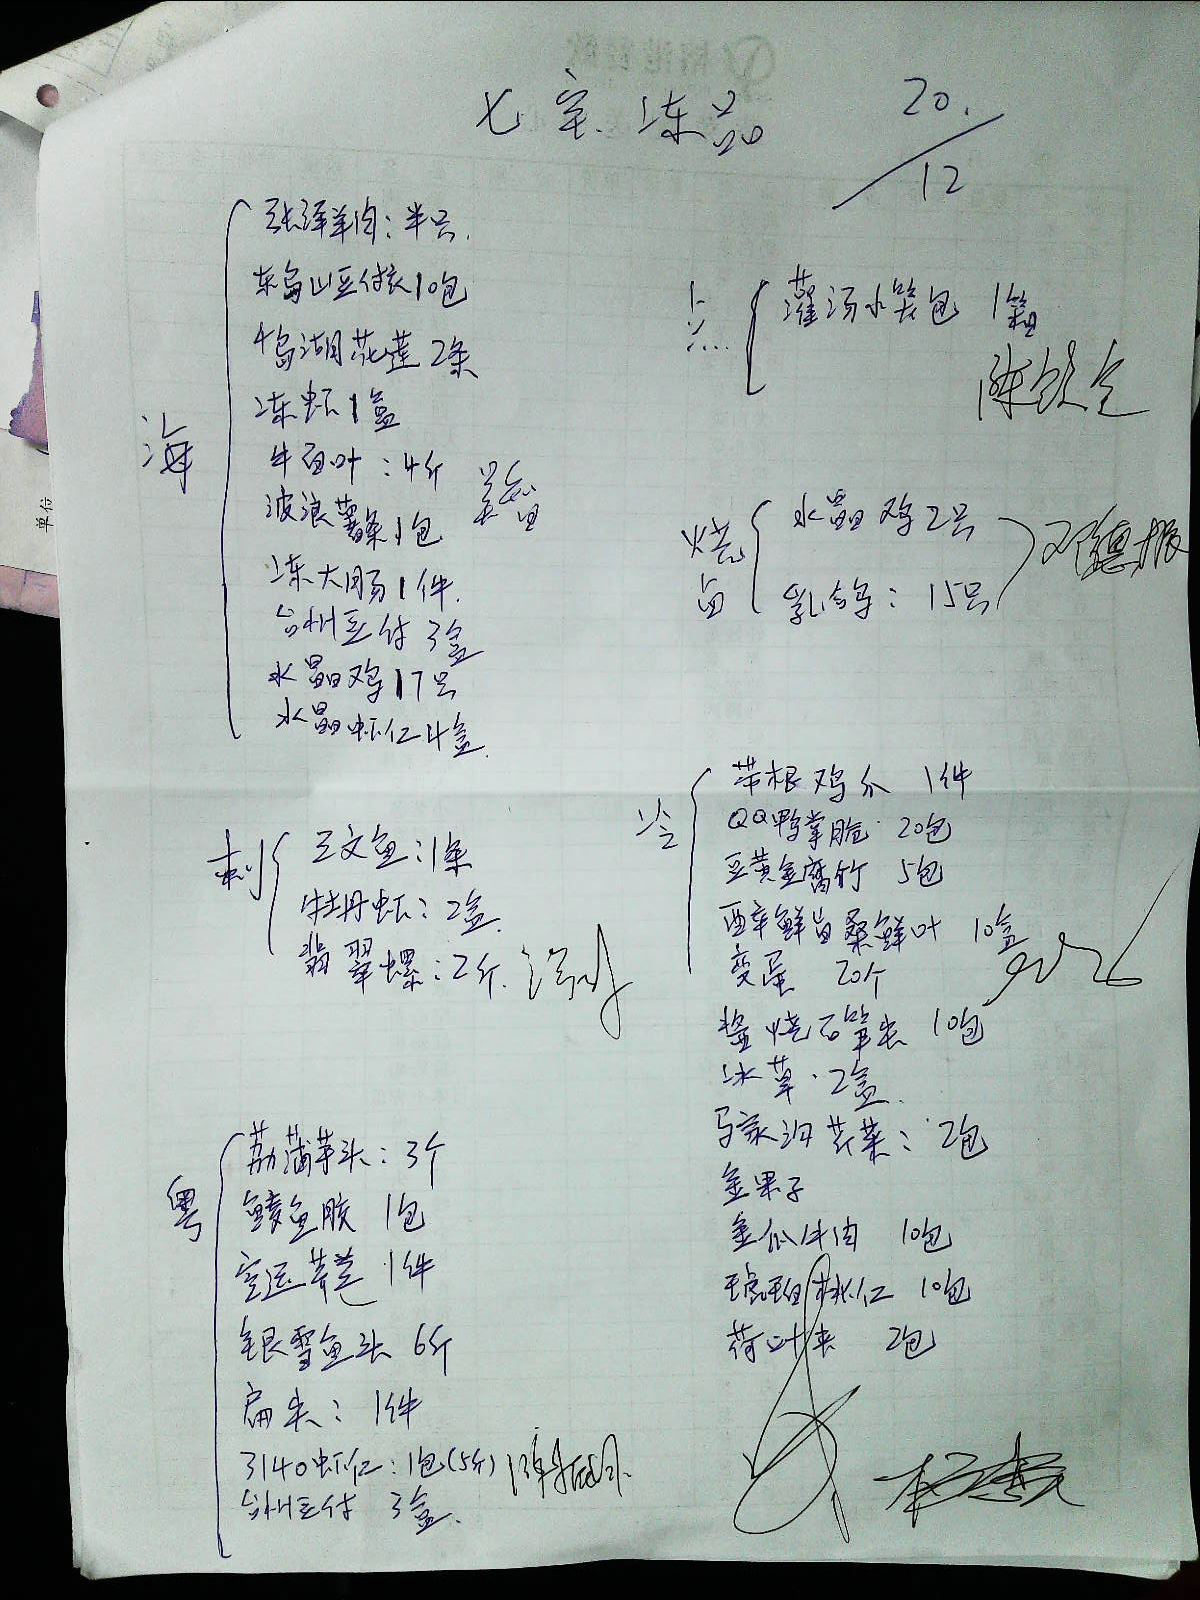 七宝冻品 20/12
海
张泽羊肉：半只
东岛山豆付衣10包
千岛湖花莲2条
冻虾1盒
牛百叶：4斤
波浪薯条1包
冻大肠1件
台州豆付3盒
水晶鸡17只
水晶虾仁4盒
刺
三文鱼：1条
牡丹虾：2盒
翡翠螺：2斤
粤
荔蒲芋头：3个
鲮鱼胶 1包
空运芥兰 1件
银雪鱼头 6斤
扁尖：1件
3140虾仁：1包(5斤)
台州豆付 3盒
点
灌汤水笼包 1箱
烧
卤
水晶鸡2只
乳鸽：15只
冷
带根鸡爪 1件
QQ鸭掌脆 20包
豆黄金腐竹 5包
鲜叶 10盒
变蛋 20个
酱烧石笋尖 10包
冰草·2盒
马家汨芥菜：2包
金果子
金瓜牛肉 10包
琥珀桃仁 10包
荷叶夹 2包
单位